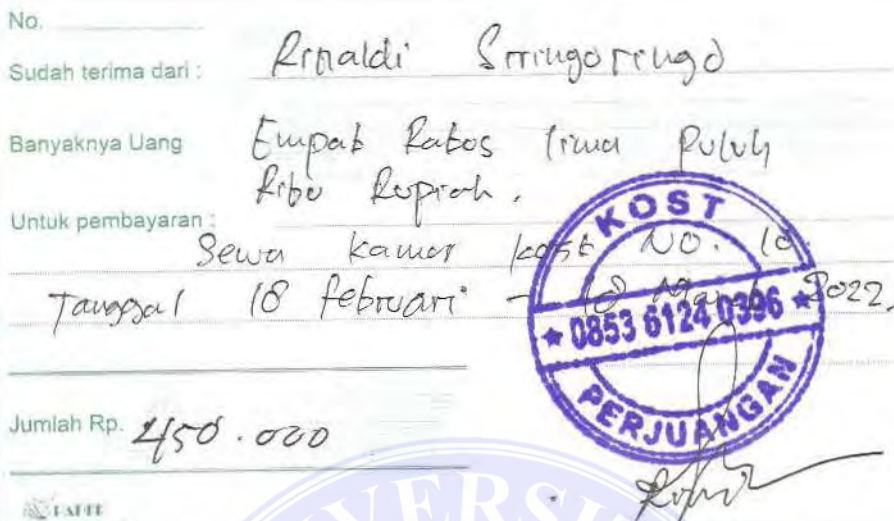 No.
Sudah terima dari : Rinaldi Siringoringo
Banyaknya Uang Empat Ratus lima Puluh
Ribu Rupiah.
Untuk pembayaran :
Sewa kamar kost NO. 10
Tanggal 18 februari - 18 Maret 2022.
KOST
0853 6124 0396
PERJUANGAN
Jumlah Rp. 450.000
VERSI